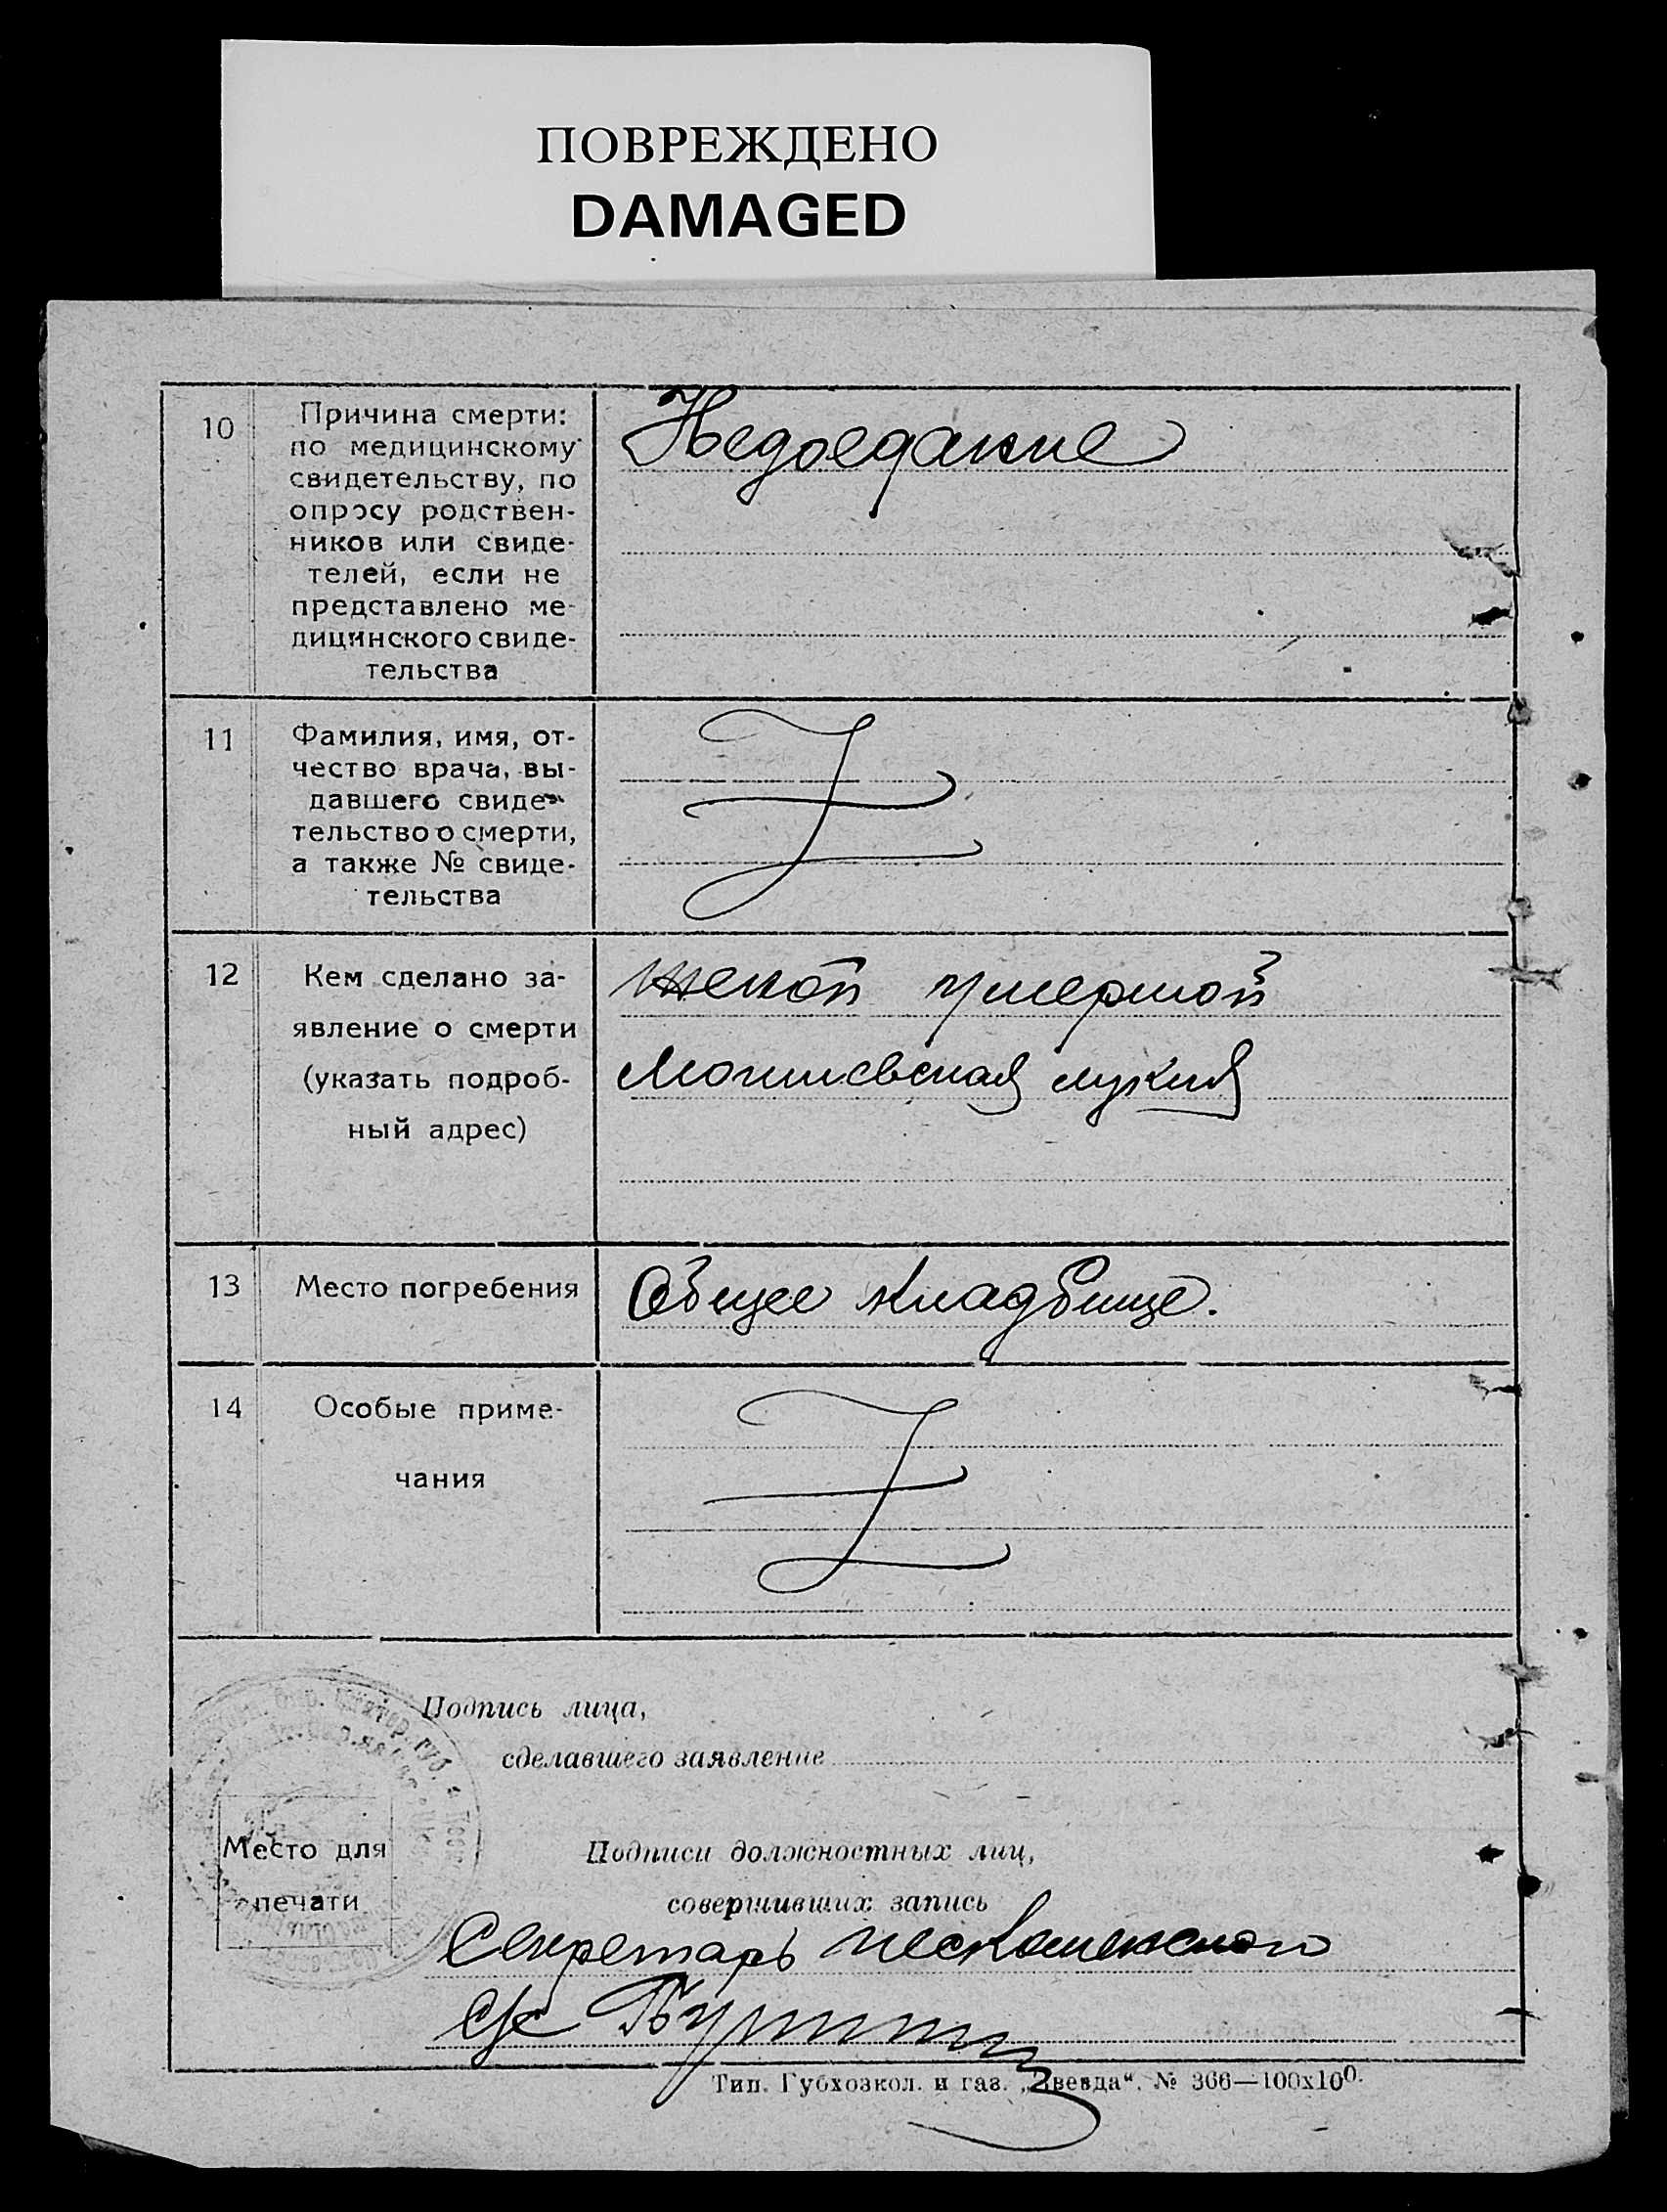 ПОВРЕЖДЕНО
DAMAGED
10
Причина смерти:
по медицинскому
свидетельству, по
опросу родствен-
ников или свиде-
телей, если не
представлено ме-
дицинского свиде-
тельства
Недоедание
11
Фамилия, имя, от-
чество врача, вы-
давшего свиде-
тельство о смерти,
а также № свиде-
тельства
12
Кем сделано за-
явление о смерти
(указать подроб-
ный адрес)
женой умершой
лукия
13
Место погребения
Общее кладбище.
14
Особые приме-
чания
Подпись лица,
сделавшего заявление
Место для
печати
Подписи должностных лиц,
совершивших запись
Секретарь
с/с
Тип. Губхозкол. и газ. „Звезда“. № 366—100х100.